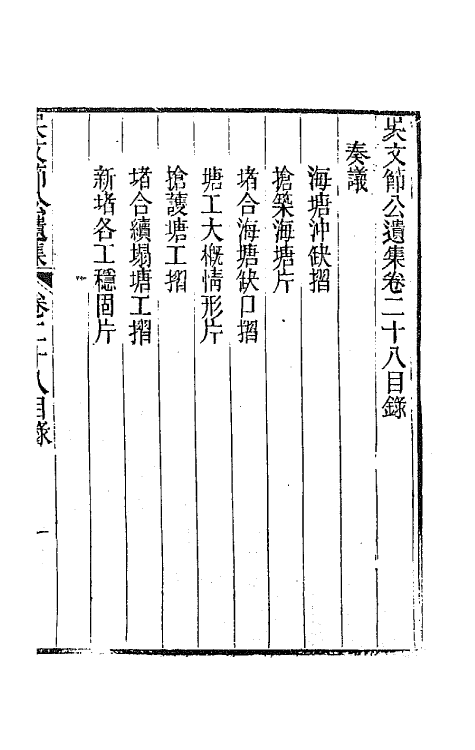 吴文節公遺集卷二十八目錄
奏議
海塘沖缺摺
搶築海塘片
堵合海塘缺口摺
塘工大概情形片
搶護塘工摺
堵合續塌塘工摺
新堵各工穩固片
吴文節公遺集 卷二十八目錄 一